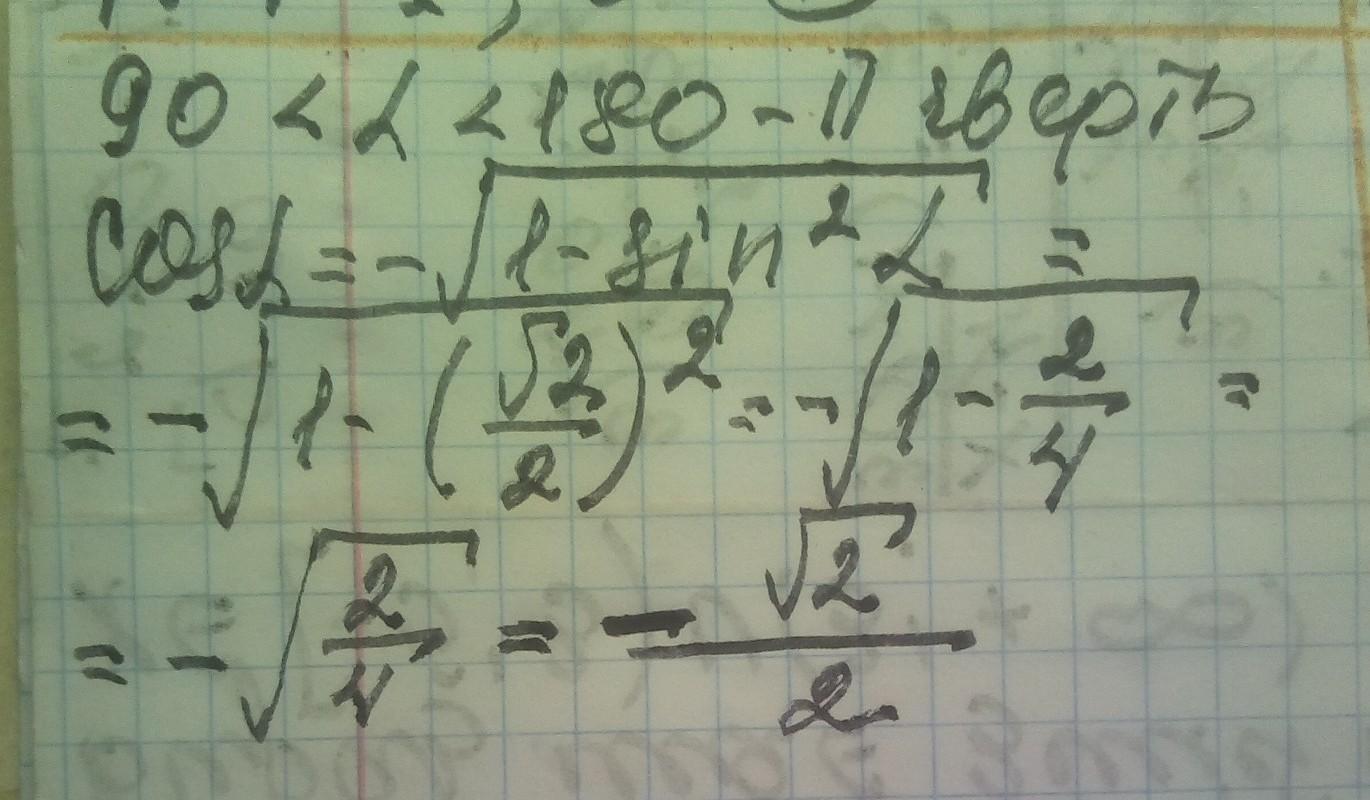 90 < α < 180 - II чверть
cos α = -√(1 - sin² α) =
= -√(1 - (√2/2)²) = -√(1 - 2/4) =
= -√(2/4) = -√2/2